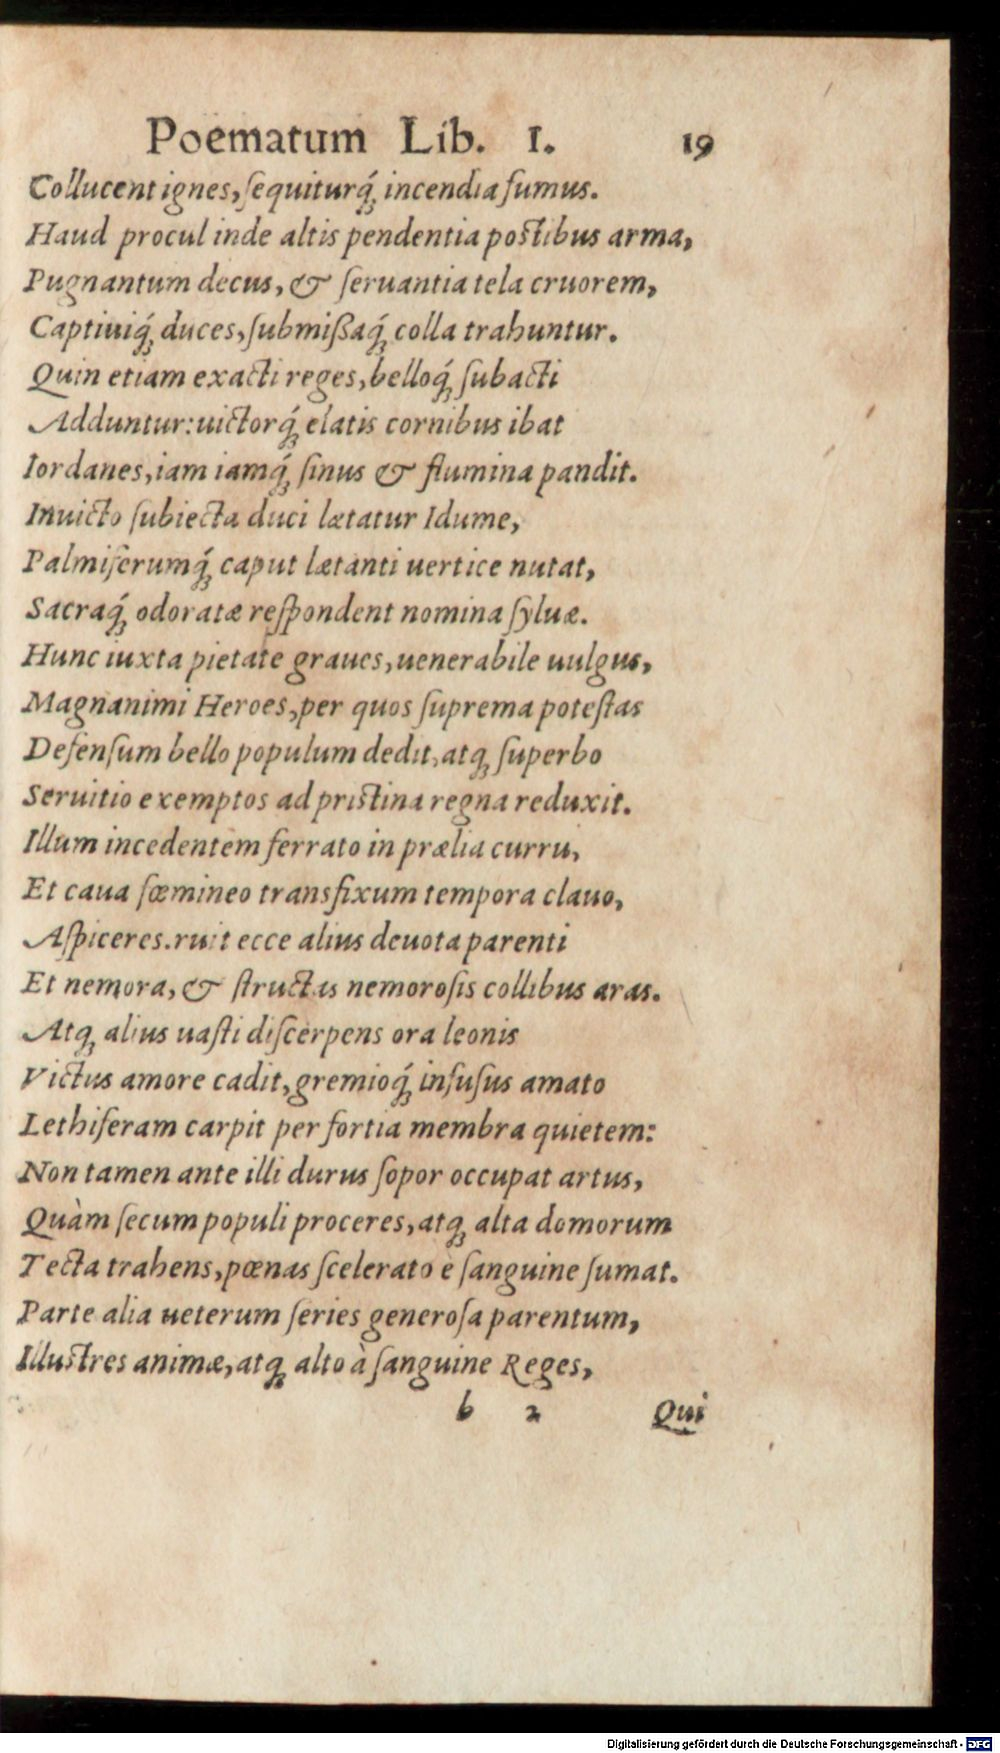 Poematum Lib. I. 19
Collucent ignes, ſequiturq́; incendia fumus.
Haud procul inde altis pendentia poſtibus arma,
Pugnantum decus, & ſeruantia tela cruorem,
Captiuiq́; duces, ſubmiſsaq́; colla trahuntur.
Quin etiam exacti reges, belloq́; ſubacti
Adduntur: uictorq́; elatis cornibus ibat
Iordanes, iam iamq́; ſinus & flumina pandit.
Inuicto ſubiecta duci lætatur Idume,
Palmiferumq́; caput lætanti uertice nutat,
Sacraq́; odoratæ reſpondent nomina ſyluæ.
Hunc iuxta pietate graues, uenerabile uulgus,
Magnanimi Heroes, per quos ſuprema poteſtas
Defenſum bello populum dedit, atq; ſuperbo
Seruitio exemptos ad priſtina regna reduxit.
Illum incedentem ferrato in prælia curru,
Et caua fœmineo transfixum tempora clauo,
Aſpiceres. ruit ecce alius deuota parenti
Et nemora, & ſtructas nemoroſis collibus aras.
Atq; alius uaſti diſcerpens ora leonis
Victus amore cadit, gremioq́; infuſus amato
Lethiferam carpit per fortia membra quietem:
Non tamen ante illi durus ſopor occupat artus,
Quàm ſecum populi proceres, atq; alta domorum
Tecta trahens, pœnas ſcelerato è ſanguine ſumat.
Parte alia ueterum ſeries generoſa parentum,
Illuſtres animæ, atq; alto à ſanguine Reges,
b 2 Qui
Digitalisierung gefördert durch die Deutsche Forschungsgemeinschaft - DFG